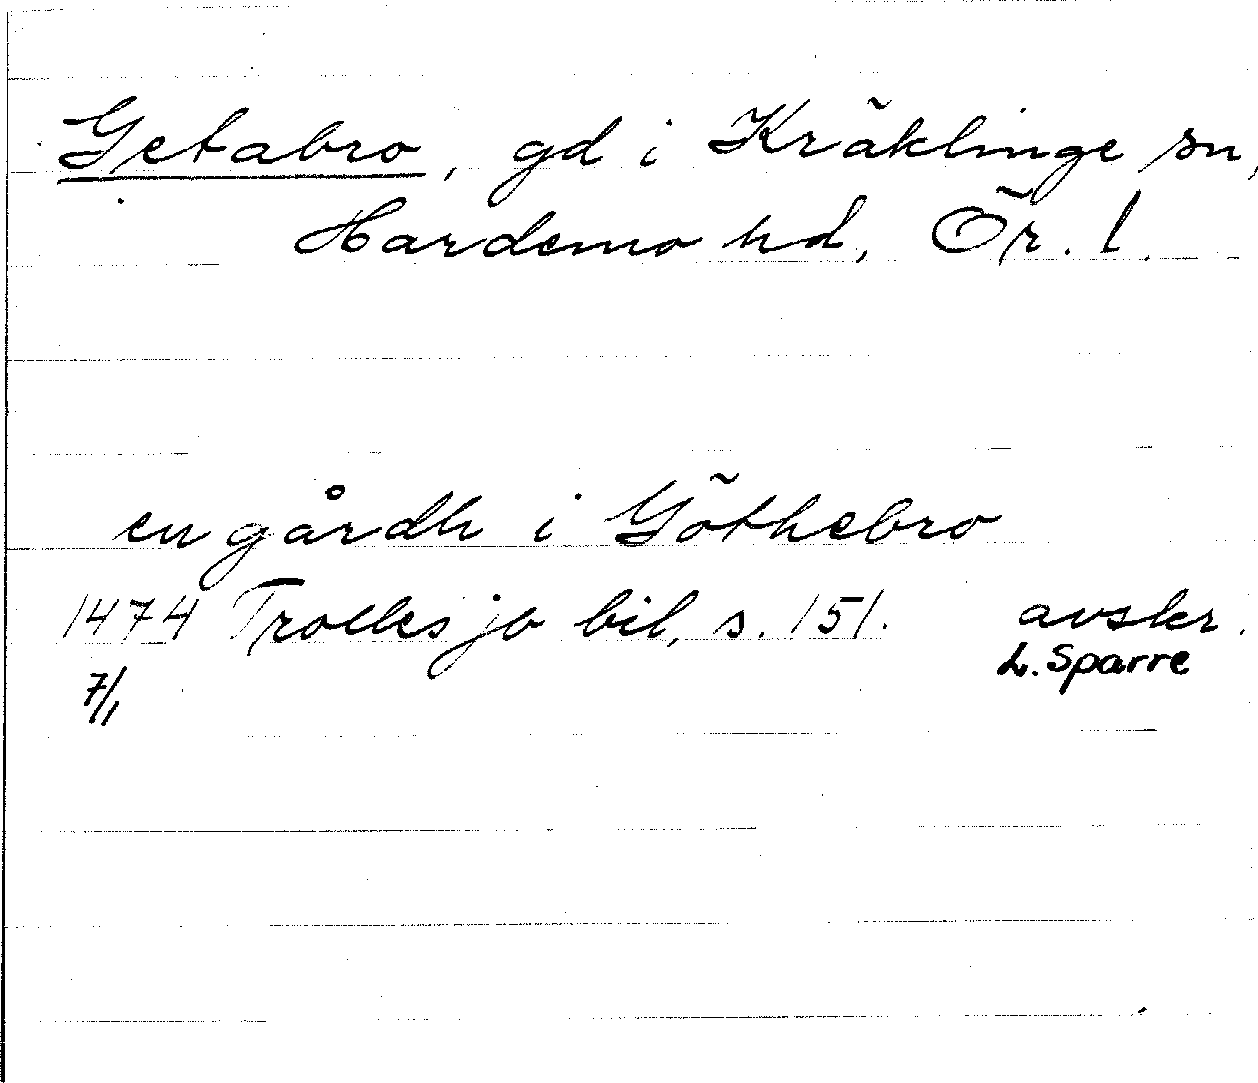 Getabro, gd i Kräklinge sn,
Hardemo hd, Ör. l.
en gårdh i Göthebro
1474 Trolles jb bil, s. 151. avskr.
7/1 L. Sparre